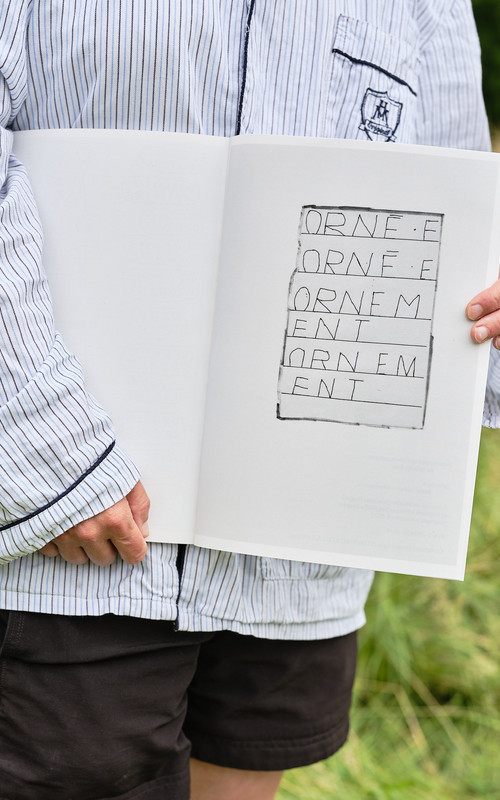 ORNÉ·E
ORNÉ·E
ORNEM
ENT
ORNEM
ENT